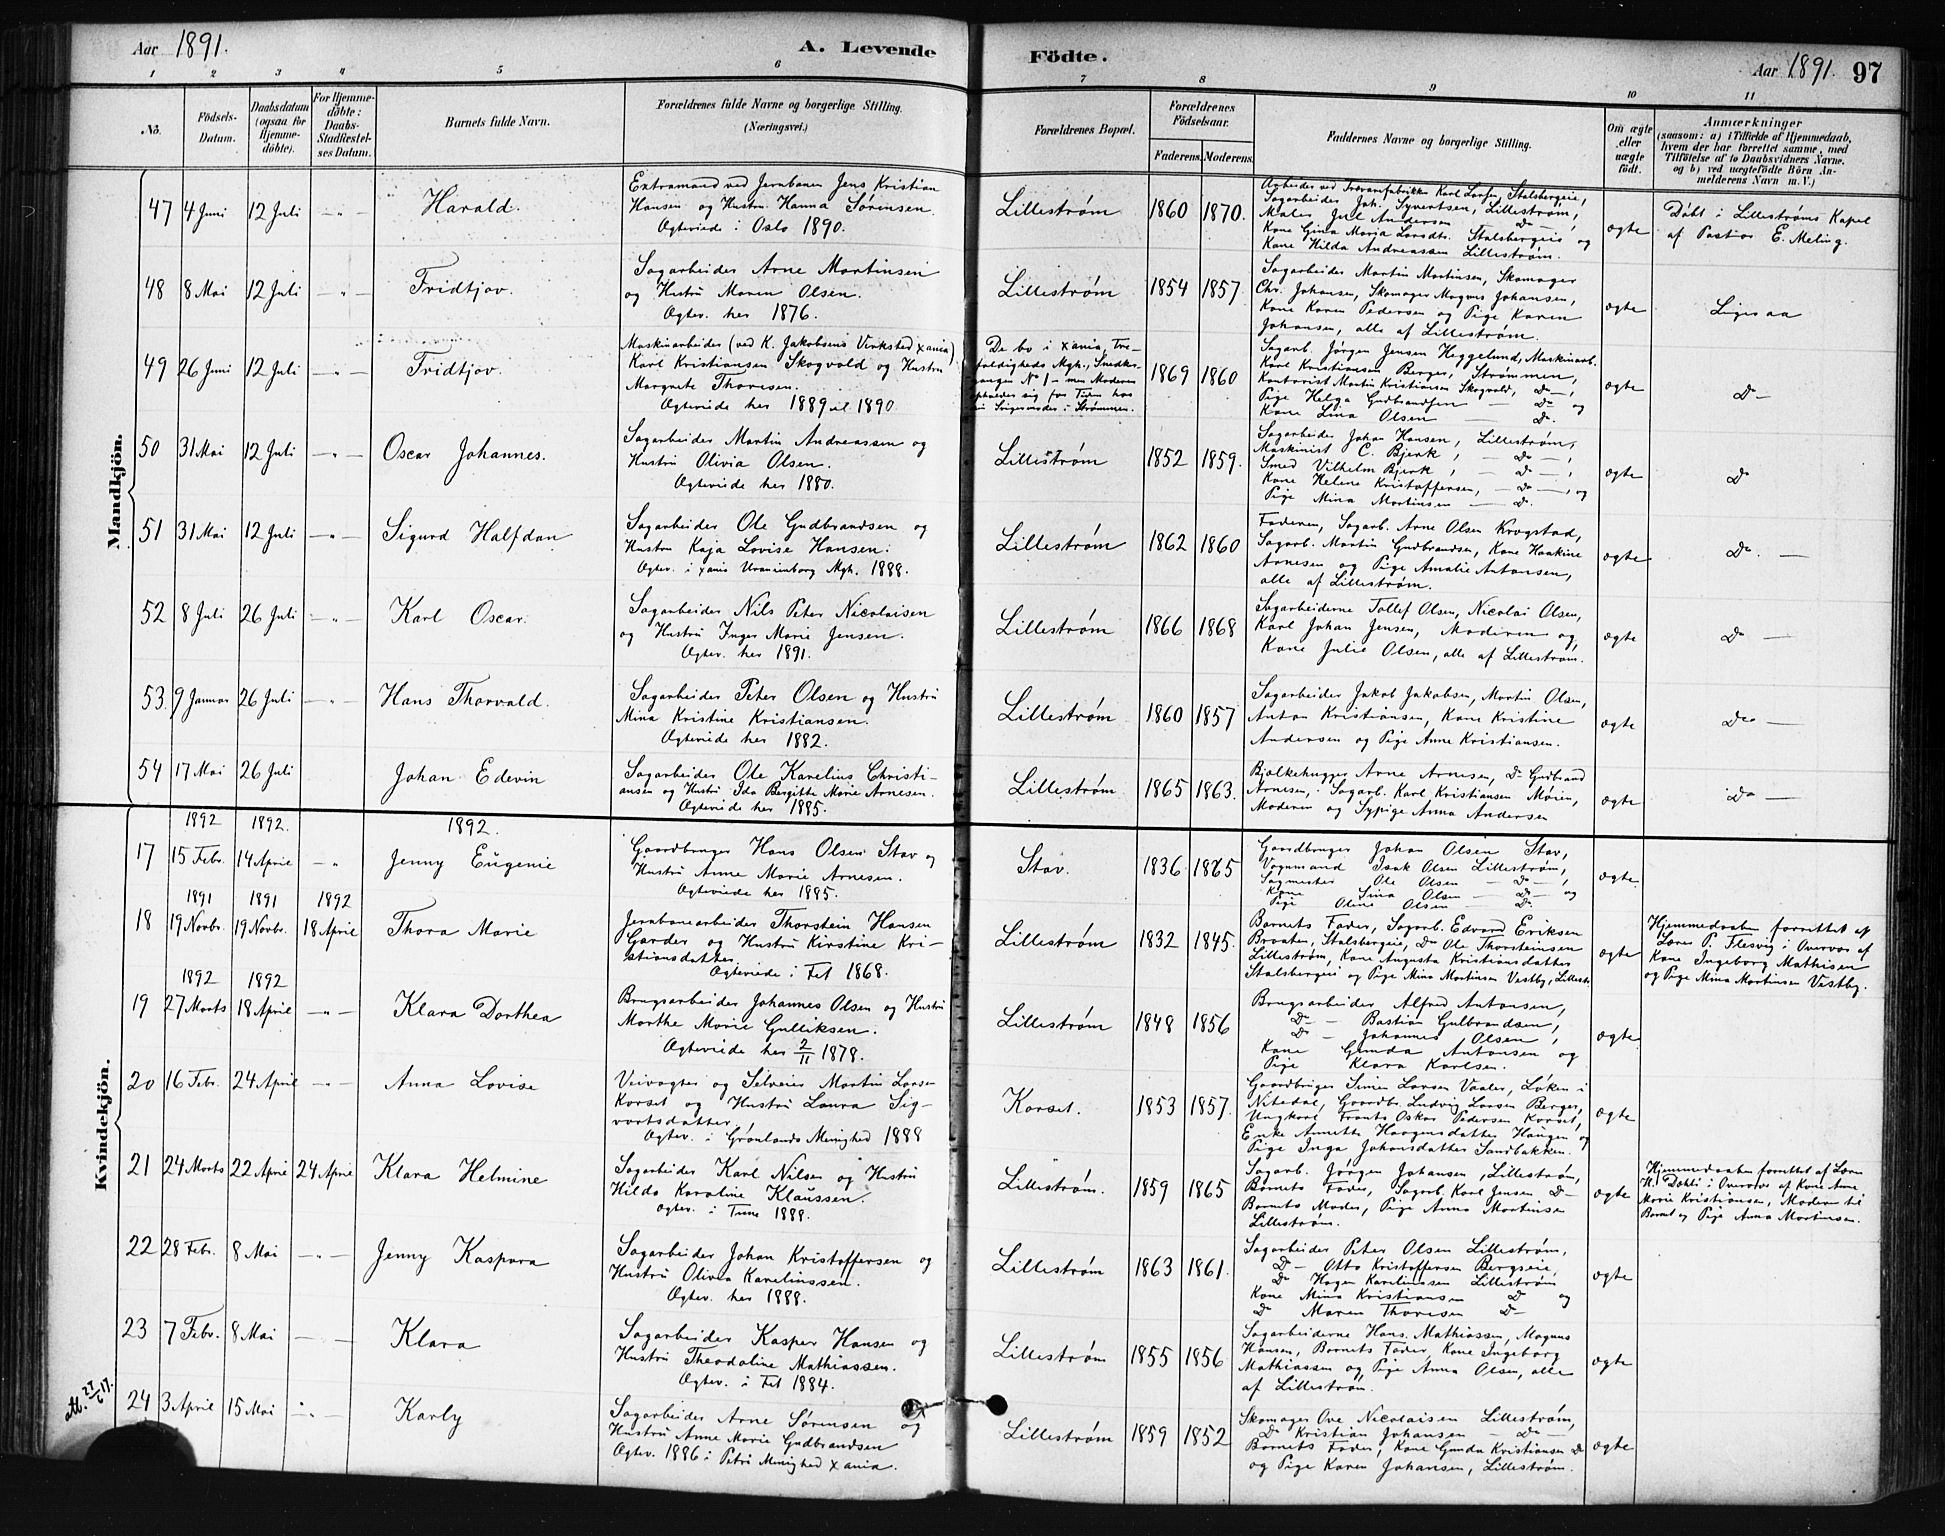 Aar 1891. A. Levende Födte. Aar 1891. 97
1 2 3 4 5 6 7 8 9 10 11
No. Födsels-Datum. Daabsdatum (ogsaa for Hjemmedöbte). For Hjemmedöbte: Daabs-Stadfæstelses Datum. Barnets fulde Navn. Forældrenes fulde Navne og borgerlige Stilling. (Næringsvei.) Forældrenes Bopæl. Forældrenes Födselsaar. Faderens. Moderens. Faddernes Navne og borgerlige Stilling. Om ægte eller uægte födt. Anmærkninger (saasom: a) i Tilfælde af Hjemmedaab, hvem der har forrettet samme, med Tilföielse af to Daabsvidners Navne. og b) ved uægtefödte Börn Anmelderens Navn m. V.)
Mandkjön.
47 4 Juni 12 Juli - " - Harald.
Extramand ved Jernbanen Jens Kristian
Hansen og Hustru Hanna Sørensen.
Ægteviede i Oslo 1890.
Lillestrøm 1860 1870.
Sagarbeider Joh. Syvertsen, Lillestrøm,
Maler Jul Andersen Do -,
Kone Gina Maria Larsdtr. Stalsbergeie og
Kone Hilda Andreassen Lillestrøm.
ægte
Døbt i Lillestrøms Kapel
af Pastor E. Meling.
48 8 Mai 12 Juli - " - Fridtjov.
Sagarbeider Arne Martinsen
og Hustru Maren Olsen.
Ægtev. her 1876.
Lillestrøm 1854 1857
Sagarbeider Martin Martinsen, Skomager
Chr. Johansen, Skomager Magnus Johansen,
Kone Karen Pedersen og Pige Karen
Johansen, alle af Lillestrøm.
ægte Ligesaa
49 26 Juni 12 Juli - " - Fridtjov.
Maskinarbeider (ved K. Jakobsens Virksted Xania)
Karl Kristiansen Skogvold og Hustru
Margrete Thoresen.
Ægteviede her 1889 el 1890
De bo i Xania, Tre-
foldigheds Mgh., Snedker-
gangen No 1 - men Moderen
opholder sig for Tiden hos
sin Svigermoder i Strømmen.
1869 1860
Sagarb. Jørgen Jensen Heggelund, Maskinarb.
Karl Kristiansen Berger, Strømmen,
Kontorist Martin Kristiansen Skogvold, Do -,
Pige Helga Gudbrandsen - Do - og
Kone Lina Olsen - Do.
ægte Do -
50 31 Mai 12 Juli - " - Oscar Johannes.
Sagarbeider Martin Andreassen og
Hustru Olivia Olsen.
Ægteviede her 1880.
Lillestrøm 1852 1859.
Sagarbeider Johan Hansen, Lillestrøm,
Maskinist C. Bjerk, - Do -,
Smed Vilhelm Bjerk, - Do -,
Kone Helene Kristoffersen, - Do -, og
Pige Mina Martinsen - Do.
ægte Do
51 31 Mai 12 Juli - " - Sigurd Halfdan
Sagarbeider Ole Gudbrandsen og
Hustru Kaja Lovise Hansen.
Ægtev. i Xania Uranienborg Mgh. 1888.
Lillestrøm 1862 1860
Faderen, Sagarb. Arne Olsen Krogstad,
Sagarb. Martin Gudbrandsen, Kone Haakine
Arnesen og Pige Amalie Antonsen,
alle af Lillestrøm.
ægte Do. -
52 8 Juli 26 Juli - " - Karl Oscar.
Sagarbeider Nils Peter Nicolaisen
og Hustru Inger Marie Jensen.
Ægtev. her 1891.
Lillestrøm 1866 1868
Sagarbeiderne Tollef Olsen, Nicolai Olsen,
Karl Johan Jensen, Moderen og
Kone Julie Olsen, alle af Lillestrøm.
ægte Do -
53. 9 Januar 26 Juli - " - Hans Thorvald.
Sagarbeider Peter Olsen og Hustru
Mina Kristine Kristiansen.
Ægteviede her 1882.
Lillestrøm 1860 1857
Sagarbeider Jakob Jakobsen, Martin Olsen,
Anton Kristiansen, Kone Kristine
Andersen og Pige Anne Kristiansen.
ægte Do -
54 17 Mai 26 Juli Johan Edevin
Sagarbeider Ole Karelius Christi-
ansen og Hustru Ida Bergitte Marie Arnesen.
Ægteviede her 1885.
Lillestrøm 1865 1863.
Bjelkehugger Arne Arnesen, Do Gudbrand
Arnesen, Sagarb. Karl Kristiansen Moien,
Moderen og Sypige Anna Andersen
ægte Do -
Kvindekjön.
1892 1892. 1892.
17 15 Febr. 14 April - " Jenny Eugenie
Gaardbruger Hans Olsen Stav og
Hustru Anne Marie Arnesen.
Ægteviede her 1885.
Stav. 1836 1865
Gaardbruger Johan Olsen Stav,
Vognmand Isak Olsen Lillestrøm,
Sagmester Ole Olsen - Do -,
Kone Sina Olsen - Do - og
Pige Oline Olsen Do.
ægte.
1891 1891 1892
18 19 Novbr. 19 Novbr. 18 April Thora Marie
Jernbanearbeider Thorstein Hansen
Garder og Hustru Kirstine Kri-
stiansdatter.
Ægteviede i Fet 1868.
Lillestrøm 1832 1845.
Barnets Fader, Sagarb. Edvard Eriksen
Braaten, Stalsbergeie, Do Ole Thorsteinsen
Lillestrøm, Kone Augusta Kristiansdatter
Stalsbergeie og Pige Mina Martinsen Vestby, Lillestr.
ægte
Hjemmedaaben forrettet af
Lærer P. Flesvig i Overvær af
Kone Ingeborg Mathisen
og Pige Mina Martinsen Vestby.
1892 1892
19 27 Marts 18 April - " - Klara Dorthea
Brugsarbeider Johannes Olsen og Hustru
Marthe Marie Gulliksen.
Ægteviede her 2/11 1878.
Lillestrøm 1848 1856
Brugsarbeider Alfred Antonsen,
Do - Bastian Gulbrandsen,
Do - Johannes Olsen,
Kone Gunda Antonsen og
Pige Klara Karlsen.
ægte.
20 16 Febr. 24 April - " - Anna Lovise
Veivogter og Selveier Martin Larsen
Korset og Hustru Laura Sig-
vartsdatter.
Ægtev. i Grønlands Menighed 1888
Korset. 1853 1857.
Gaardbruger Simen Larsen Vaaler, Løken i
Nitedal, Gaardbr. Ludvig Larsen Berger,
Ungkarl Frants Oskar Pedersen Korset,
Enke Annette Haagensdatter Haugen og
Pige Inga Johansdatter Sandbakken.
ægte
21 24 Marts 22 April 24 April Klara Helmine
Sagarbeider Karl Nilsen og Hustru
Hilda Karoline Klaussen.
Ægtev. i Tune 1888.
Lillestrøm. 1859 1865
Sagarb. Jørgen Johansen, Lillestrøm,
Barnets Fader, Sagarb. Karl Jensen Do -
Barnets Moder, Pige Anna Martinsen
Lillestrøm.
ægte
Hjemmedaaben forrettet af Lærer
H. Dahl i Overvær af Kone Ane
Marie Kristiansen, Moderen til
Barnet og Pige Anna Martinsen.
22 28 Febr. 8 Mai - " - Jenny Kaspara
Sagarbeider Johan Kristoffersen og
Hustru Olivia Kareliussen.
Ægtev. her 1888.
Lillestrøm 1863 1861.
Sagarbeider Peter Olsen Lillestrøm,
Do - Otto Kristoffersen Bergseie,
Do Hagen Kareliussen Lillestrøm
Kone Mina Kristiansen Do og
Do Maren Thoresen Do -
ægte
23 7 Febr. 8 Mai - - Klara
Sagarbeider Kasper Hansen og
Hustru Theodoline Mathiassen.
Ægtev. i Fet 1884.
Lillestrøm 1855 1856
Sagarbeiderne Hans Mathiassen, Magnus
Hansen, Barnets Fader, Kone Ingeborg
Mathiassen og Pige Anna Olsen, alle
af Lillestrøm.
ægte
att. 27/6 17.
24 3 April 15 Mai " - Karly
Sagarbeider Arne Sørensen og
Hustru Anne Marie Gudbrandsen
Ægtev. 1886 i Petri Menighed Xania.
Lillestrøm 1859 1852
Skomager Ove Nicolaisen Lillestrøm,
Do Kristian Johansen - Do -
Barnets Fader, Kone Gunda Kristiansen Do
og Pige Karen Johansen, Lillestrøm.
ægte